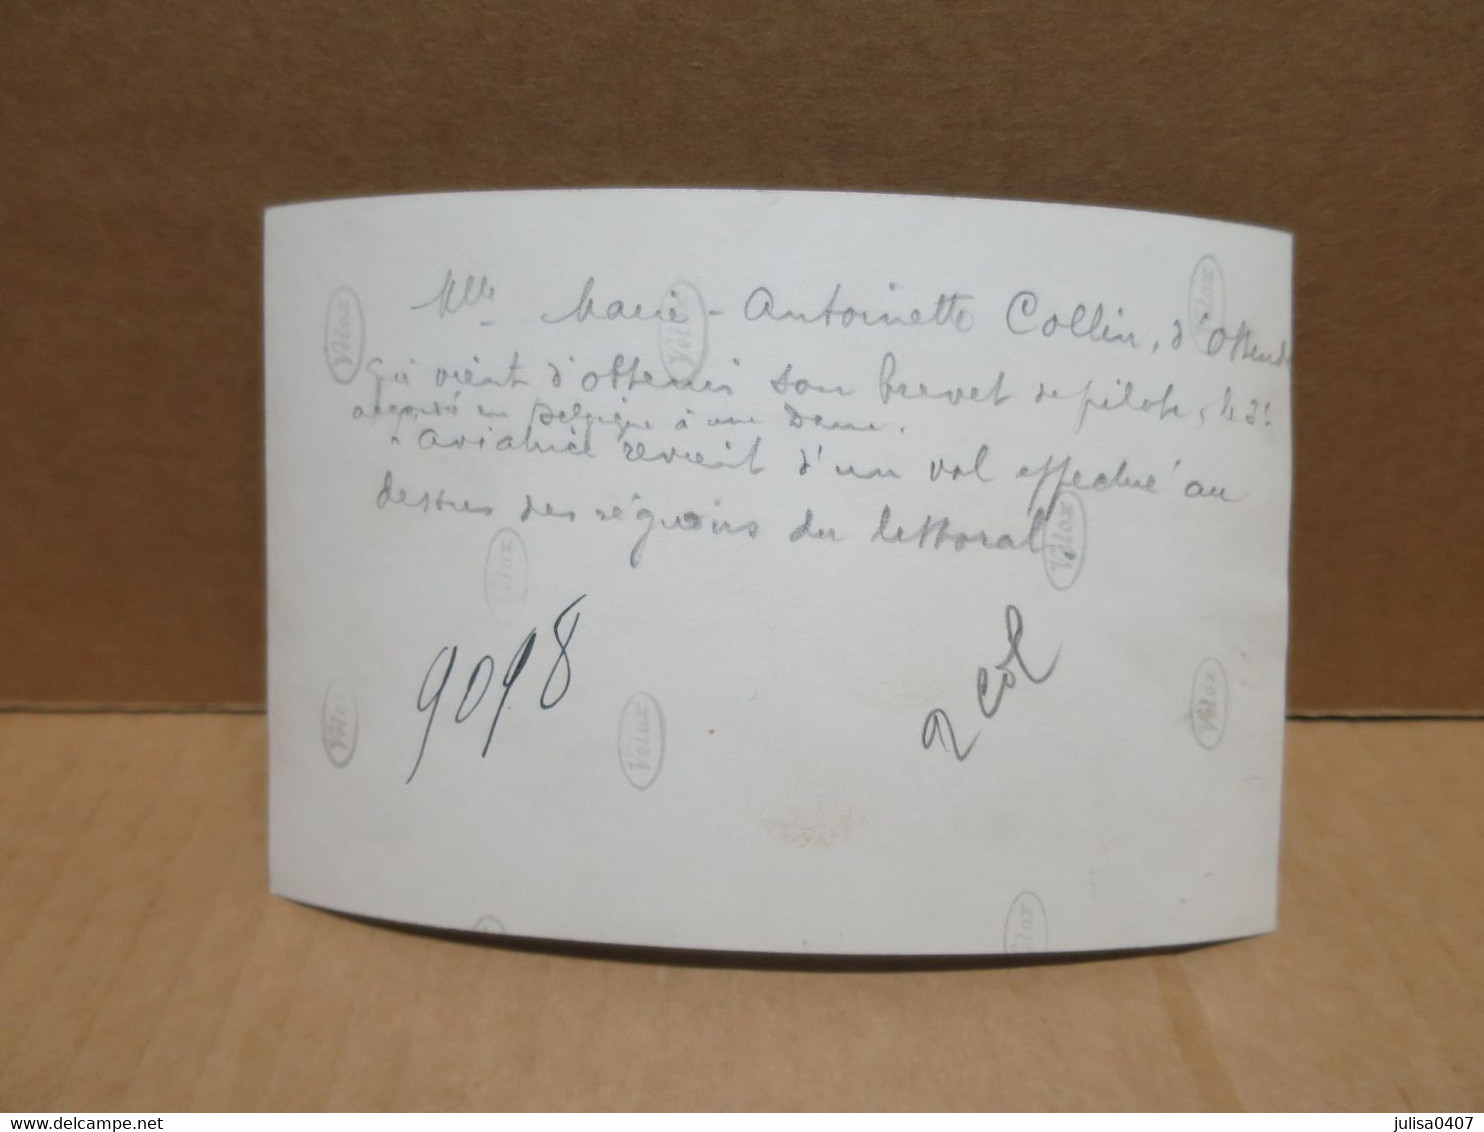 Mlle Marie-Antoinette Collin, d'Ostende
qui vient d'obtenir son brevet de pilote, le 2e
accordé en Belgique à une Dame.
aviatrice revient d'un vol effectué au
dessus des régions du littoral
9098
2 col
Velox
Velox
Velox
Velox
Velox
Velox
Velox
Velox
Velox
delcampe.net
julisa0407